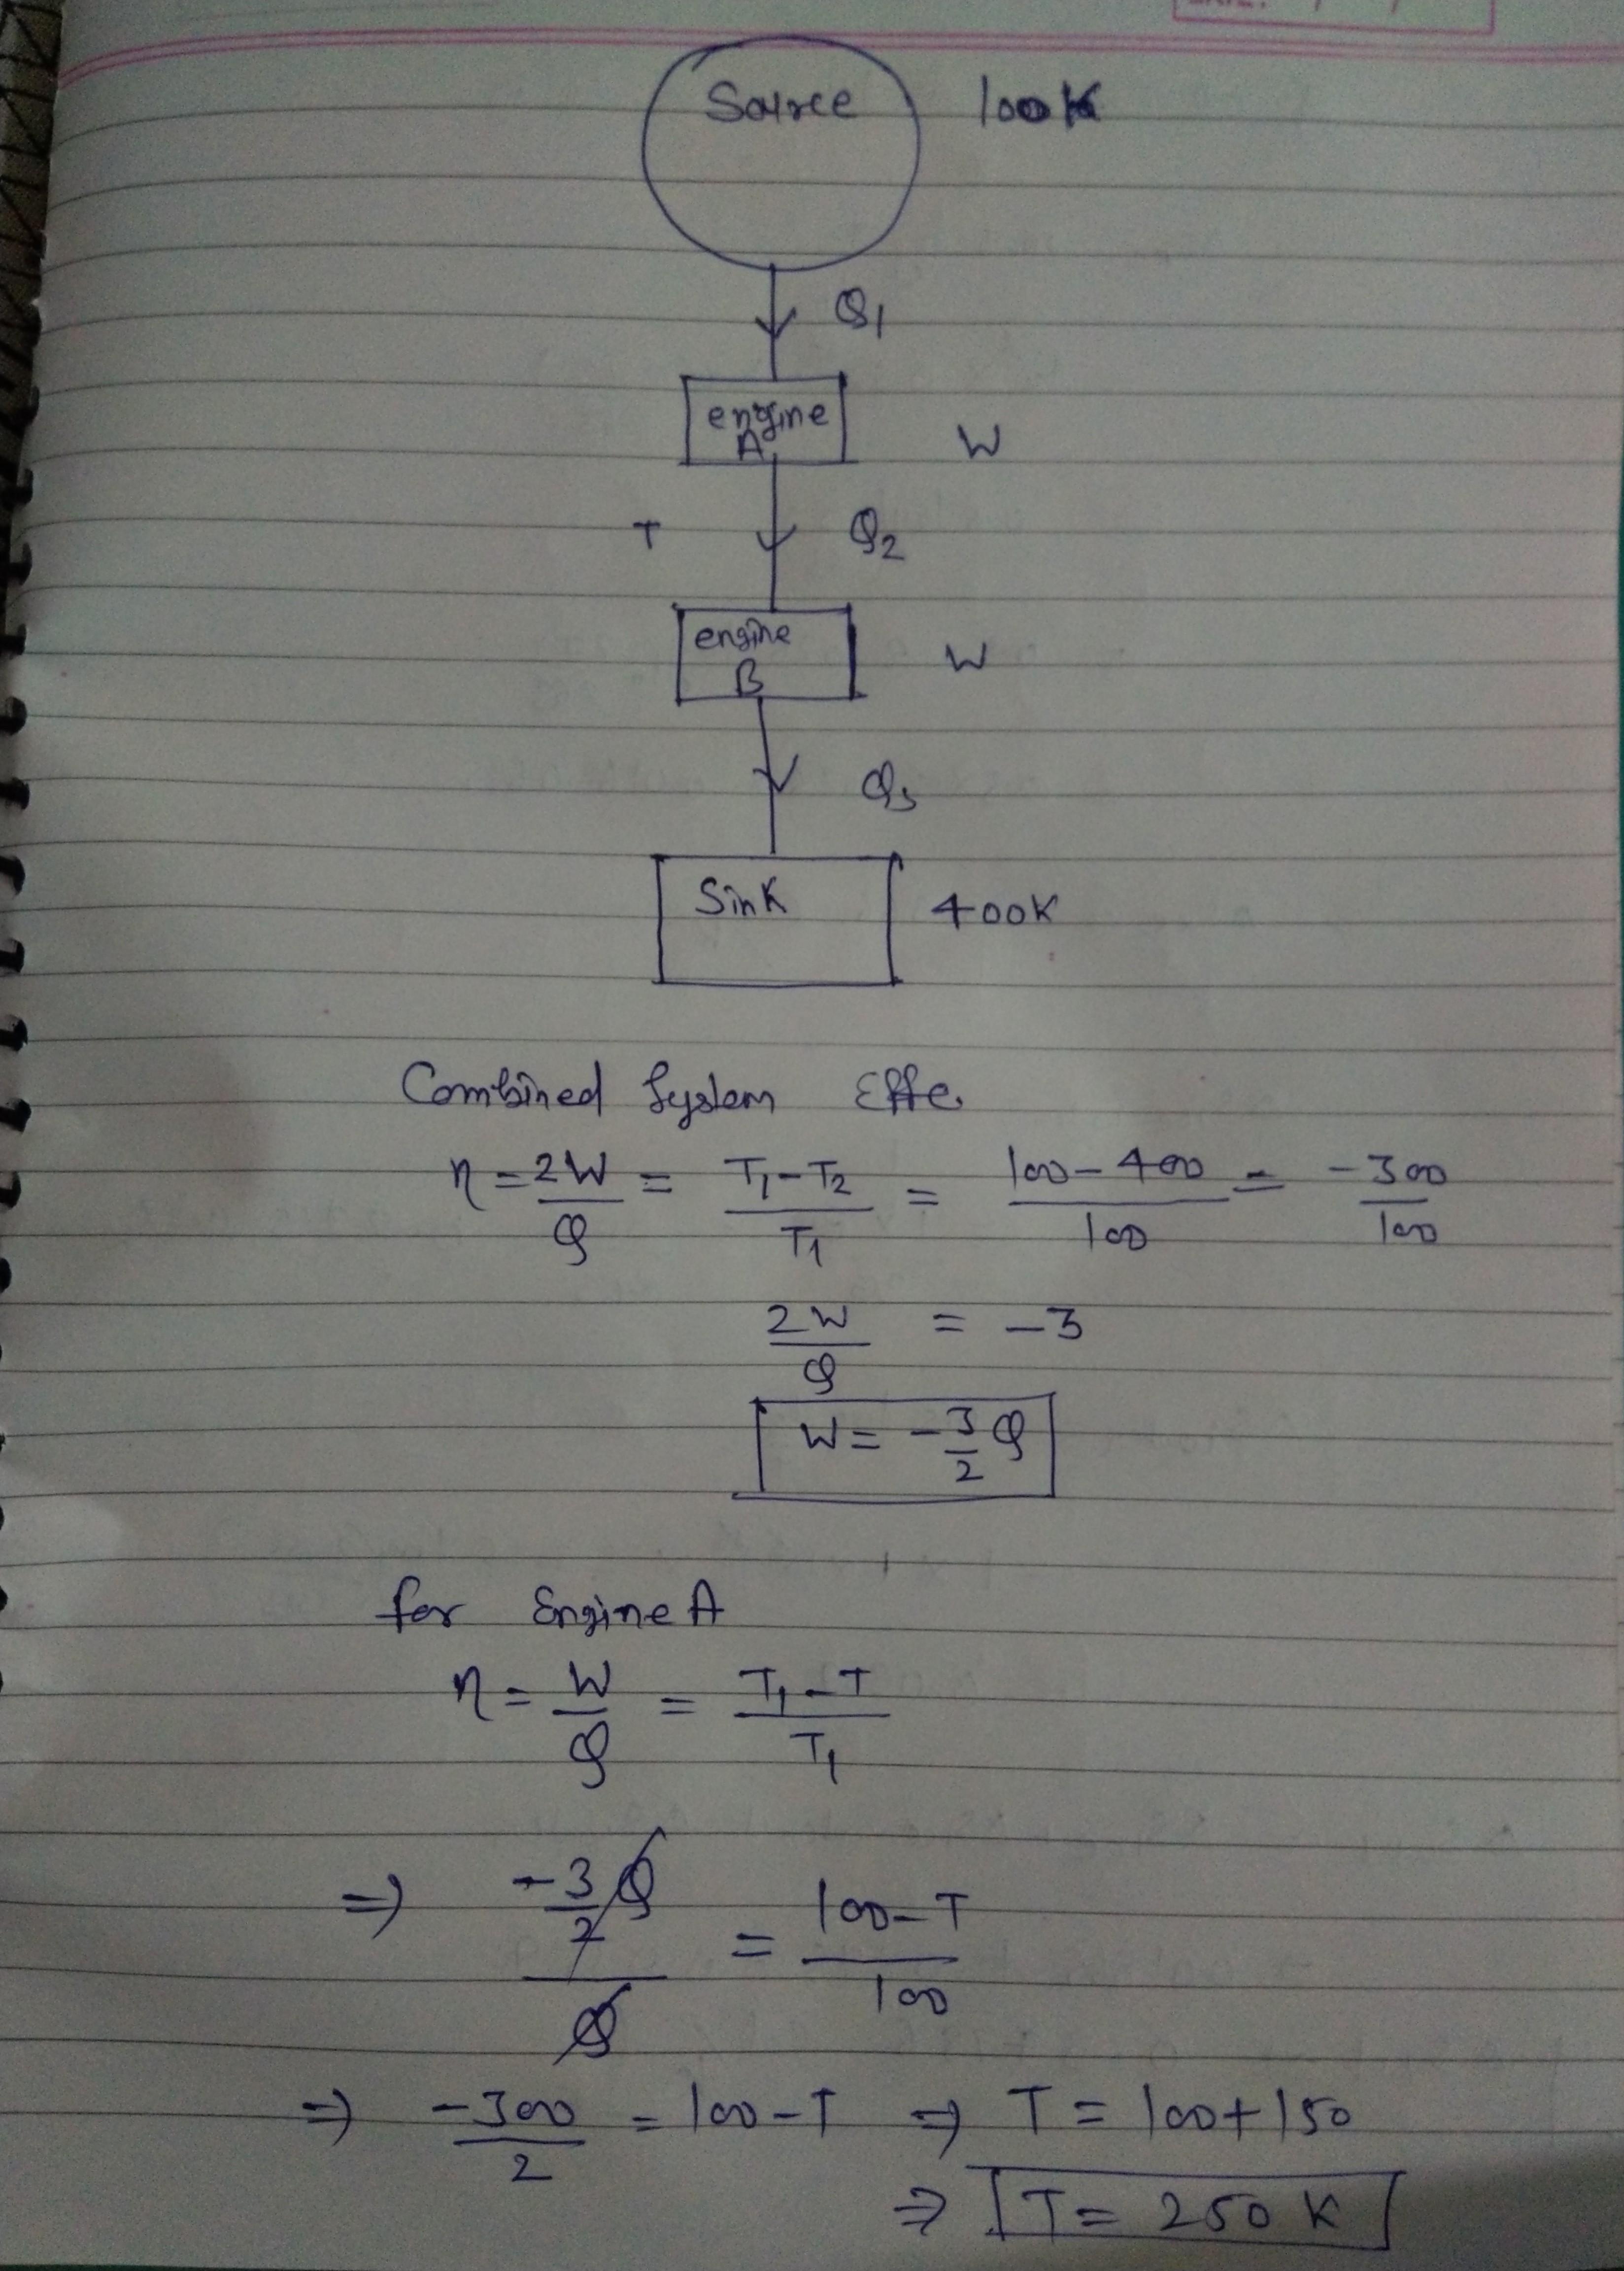 Source 100K
Q1
engine
A
W
T Q2
engine
B
W
Q3
Sink 400K
Combined System Effe
η = 2W/Q = T1-T2/T1 = 100-400/100 = -300/100
2W/Q = -3
W = -3/2 Q
for Engine A
η = W/Q = T1-T/T1
⇒ -3/2 Q/Q = 100-T/100
⇒ -300/2 = 100-T ⇒ T = 100+150
⇒ T = 250 K